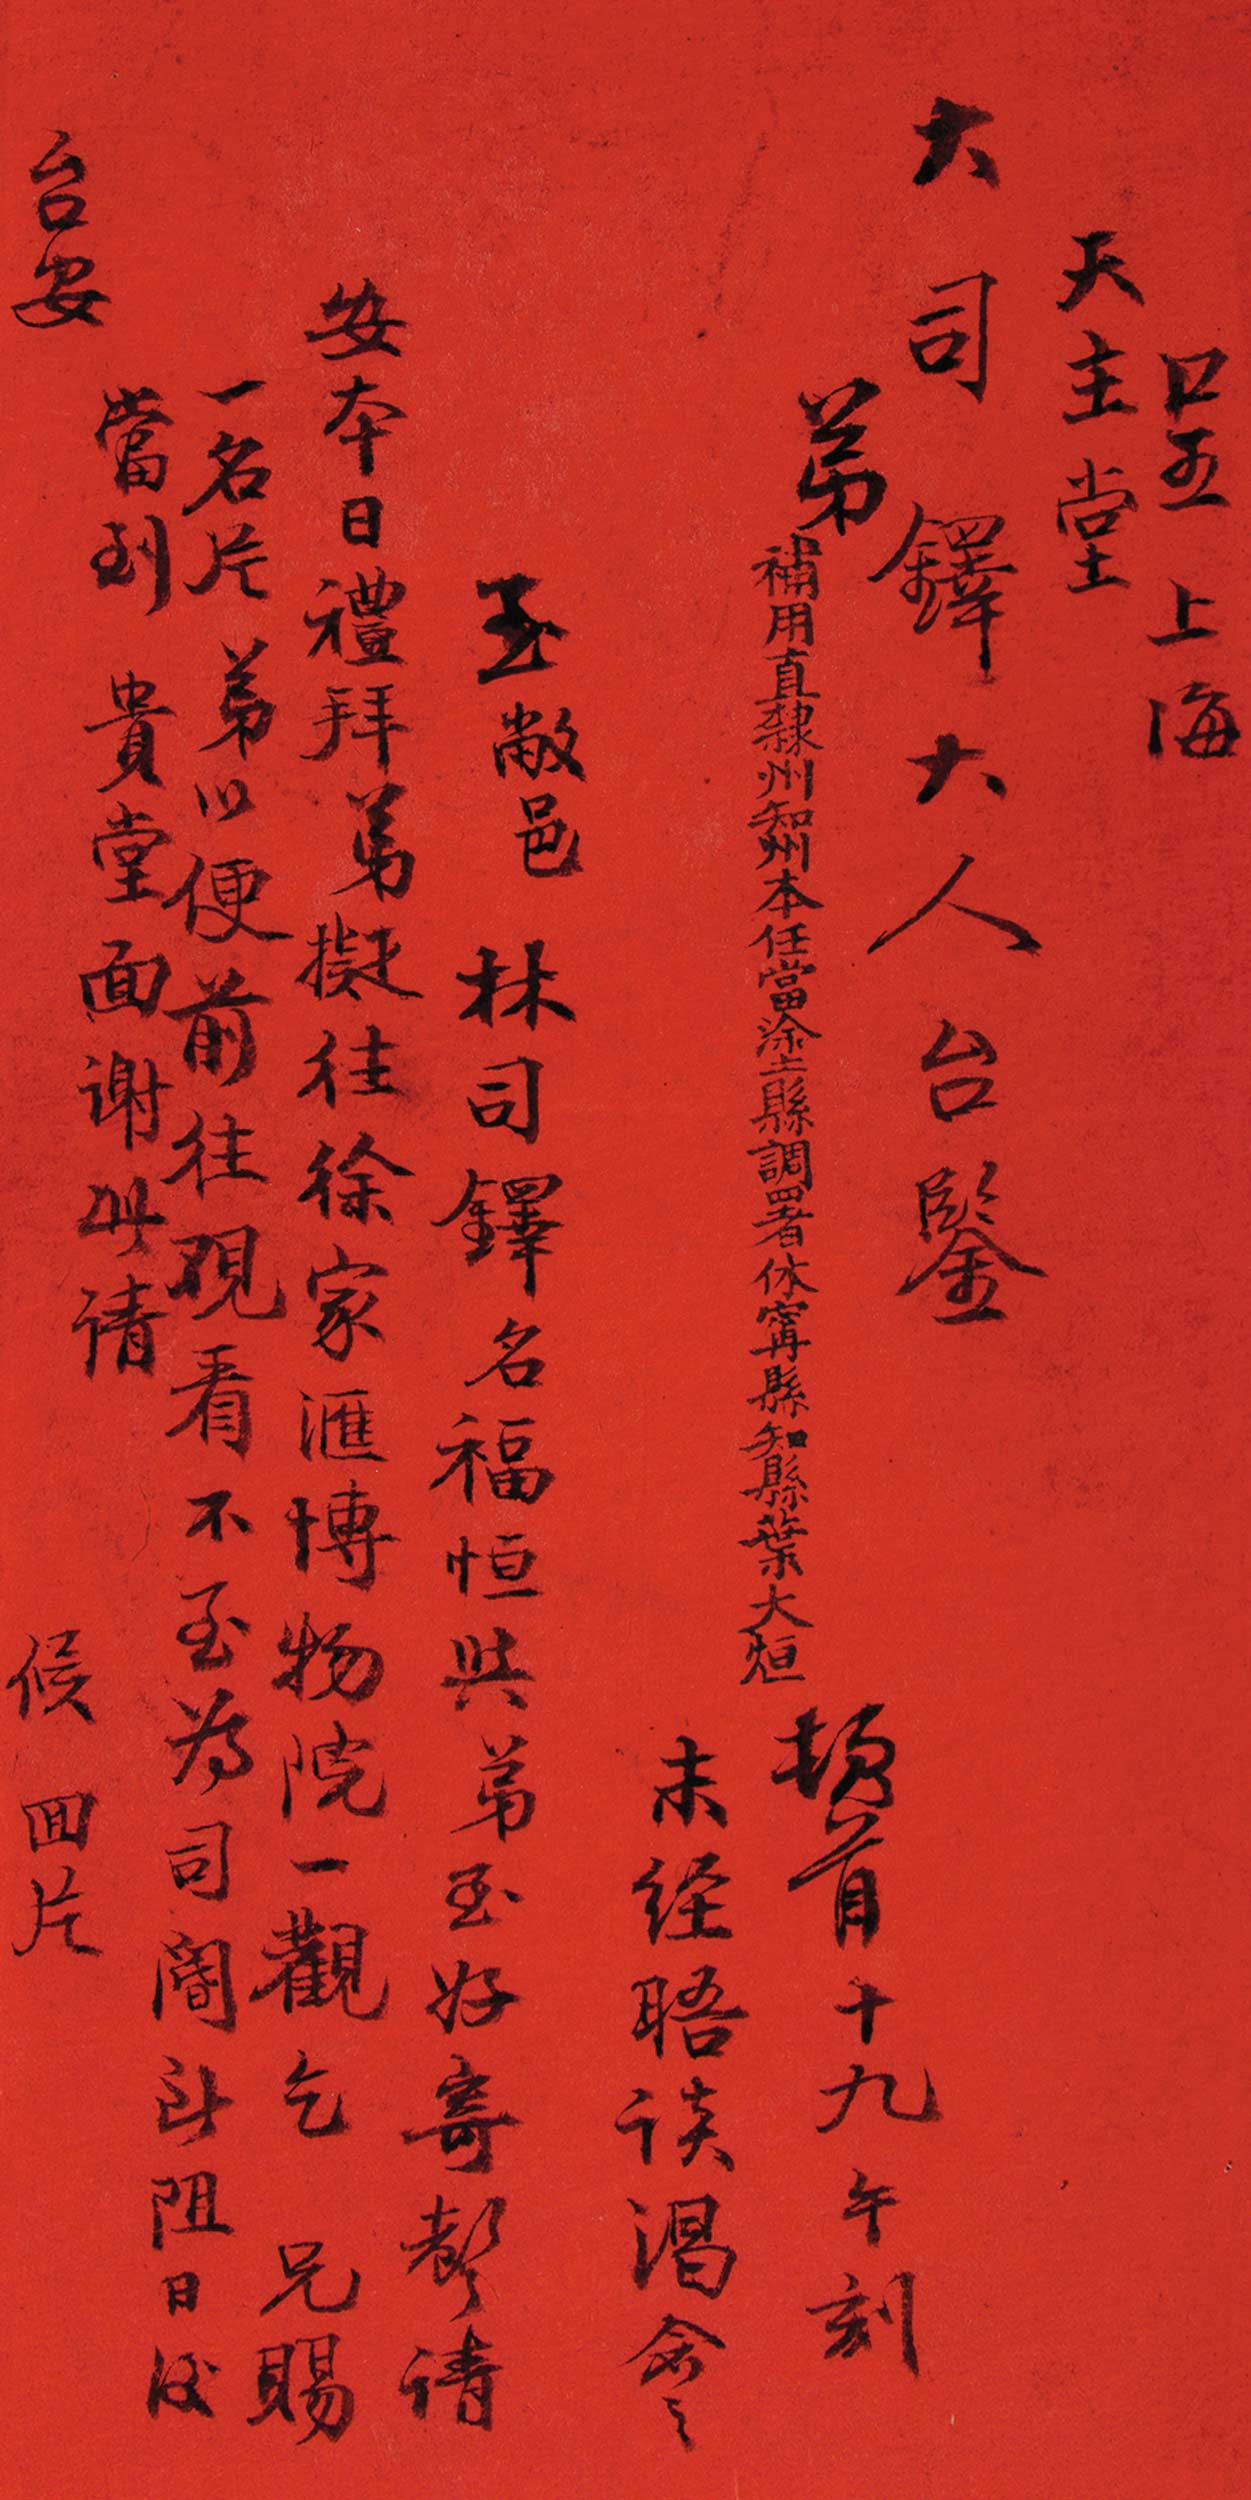 呈 上海
天主堂
大司鐸大人台鑒
弟補用直隸州知州本任當塗縣調署休寧縣知縣葉大烜頓首十九午刻
未経晤谈渴念之
至敝邑 林司鐸名福恒与弟至好寄聲请
安本日禮拜弟擬往徐家滙博物院一觀乞 兄賜
一名片 弟以便前往观看不至为司閽所阻日後
當到 貴堂面谢此请
台安 候 回片